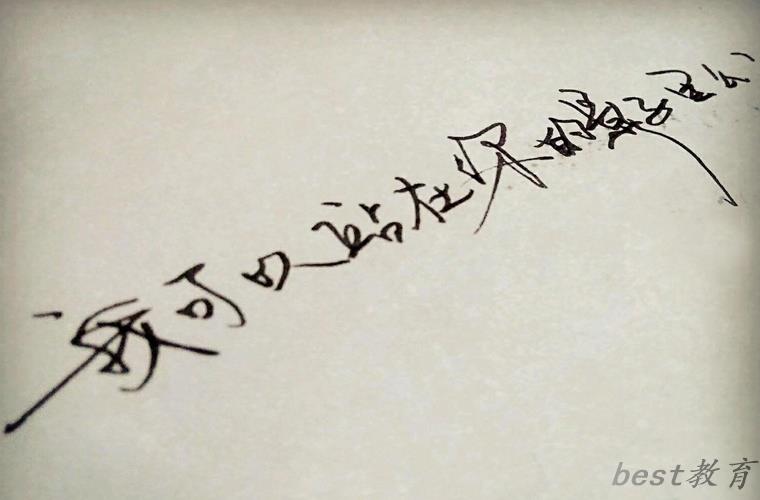 我可以站在你的影子里么
best教育